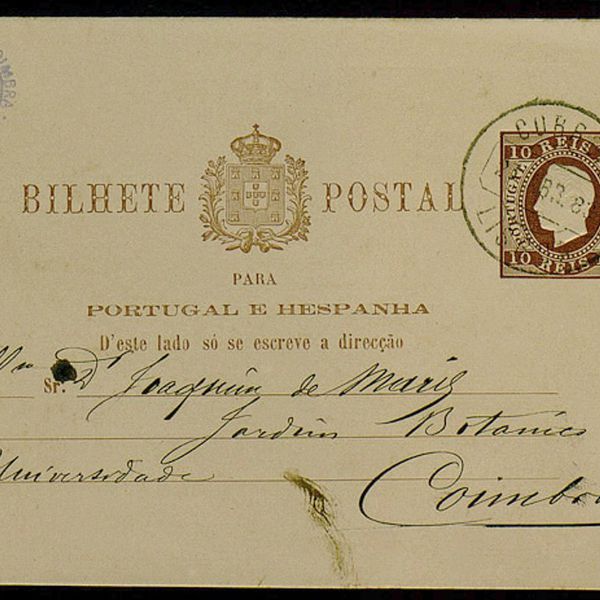 OIMBRA
BILHETE POSTAL
CORR
10 REIS
PORTUGAL
10 REIS
PARA
PORTUGAL E HESPANHA
D'este lado só se escreve a direcção
Sr. D. Joaquim de Mariz
Jardim Botanico
Universidade
Coimbra